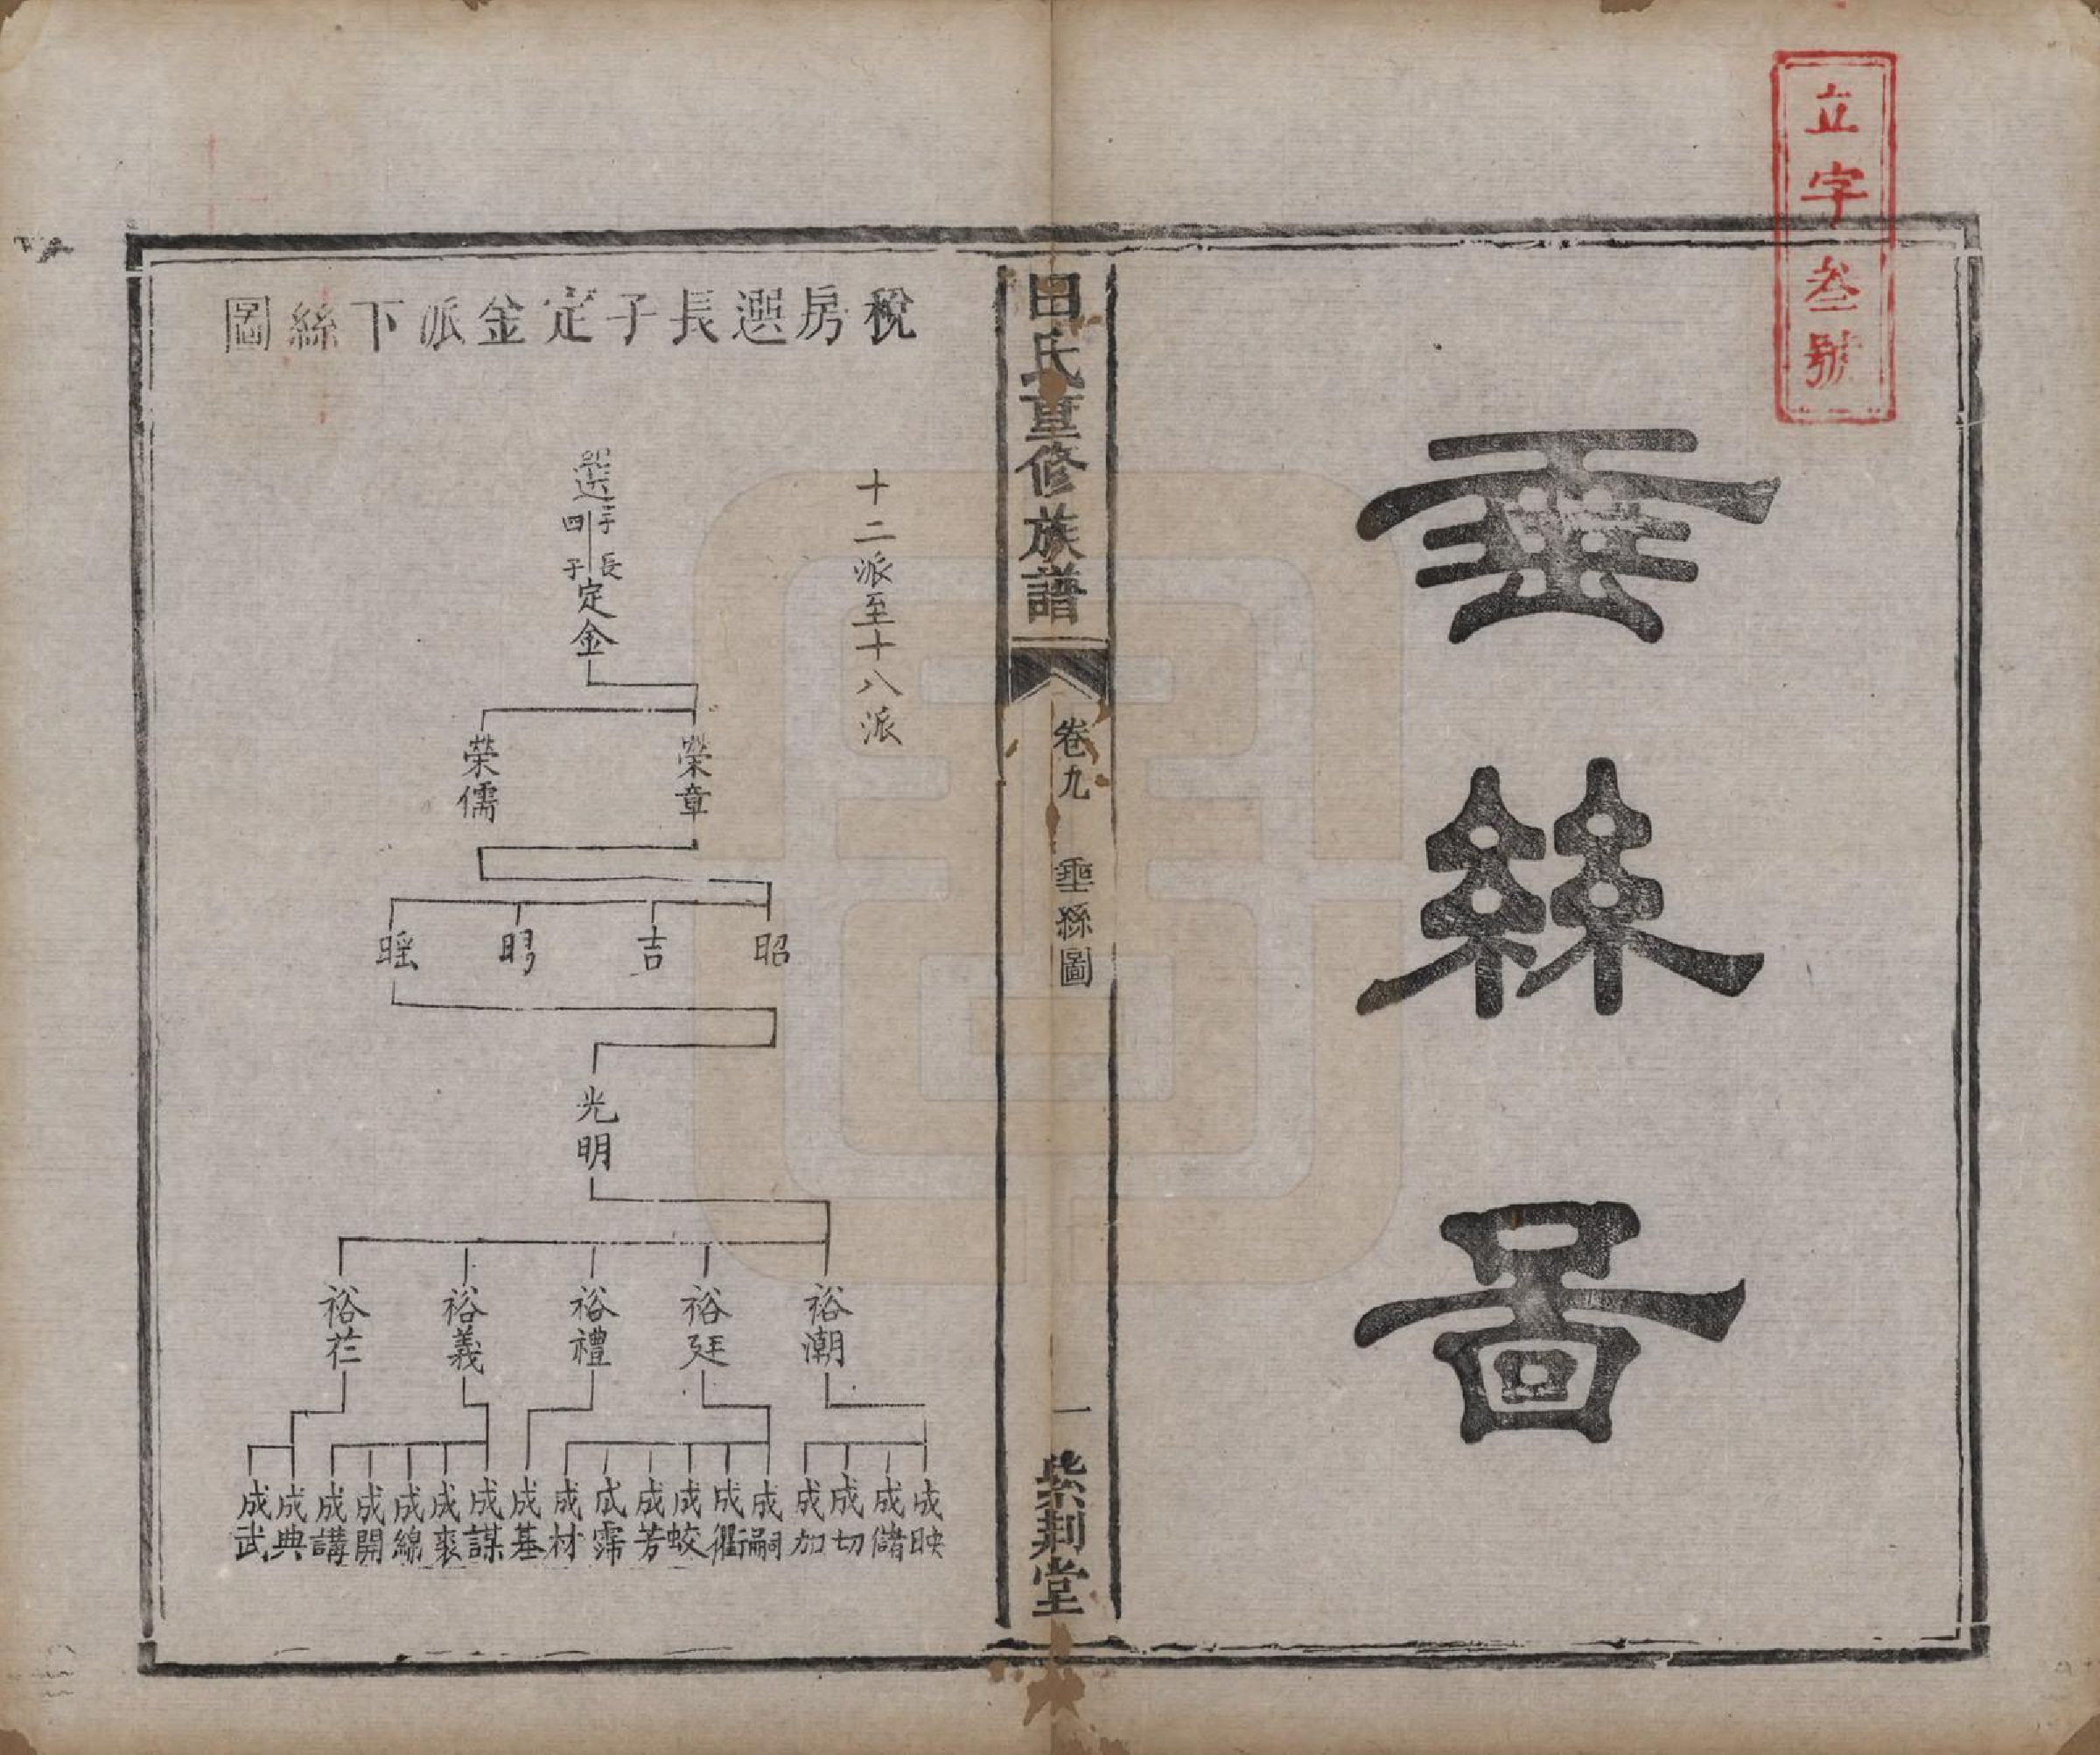 立字叁號
垂絲圖
田氏重修族譜
卷九
垂絲圖
一
紫荆堂
稅房選長子定金派下絲圖
十二派至十八派
選
四子
子長
定金
榮章
榮儒
昭
吉
光明
裕潮
裕廷
裕禮
裕義
成映
成儲
成切
成加
成嗣
成衢
成蛟
成芳
成霈
成材
成基
成謀
成裘
成綿
成開
成講
成典
成武